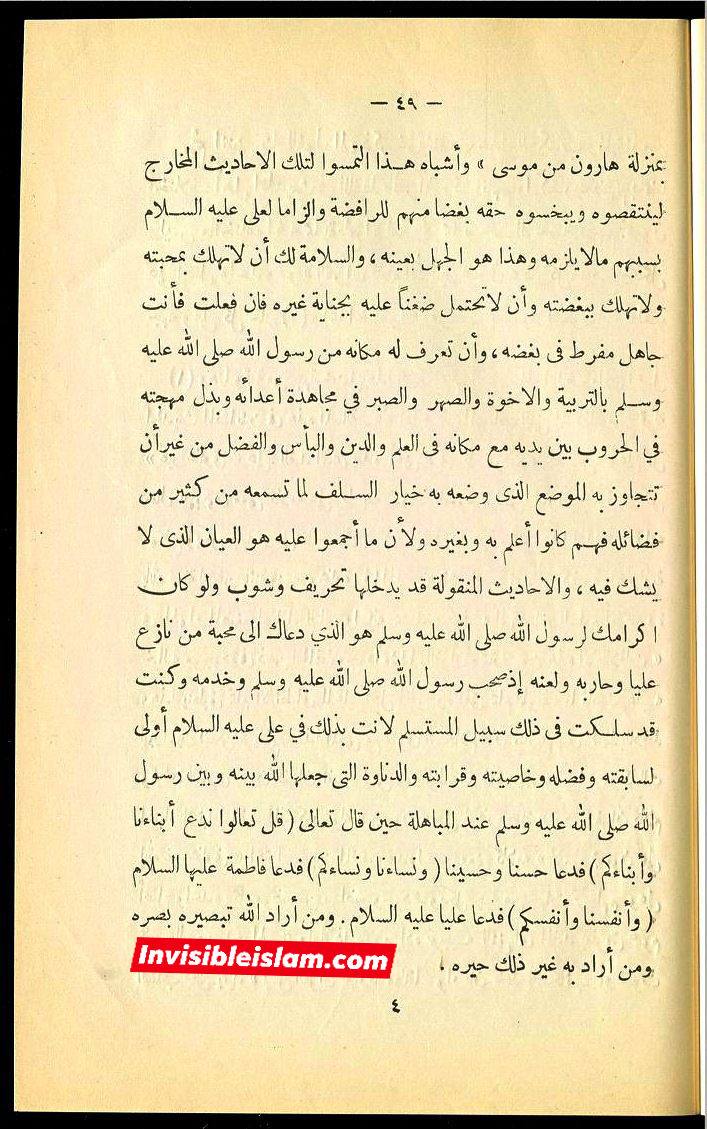 — ٤٩ —
بمنزلة هارون من موسى » وأشباه هـذا التمسوا لتلك الاحاديث المخارج
لينتقصوه ويبخسوه حقه بغضا منهم للرافضة والزاما لعلى عليه الســلام
بسببهم مالا يلزمه وهذا هو الجهل بعينه ، والسلامة لك أن لاتهلك بمحبته
ولاتهلك ببغضته وأن لاتحتمل ضغناً عليه بجناية غيره فان فعلت فأنت
جاهل مفرط فى بغضه ، وأن تعرف له مكانه من رسول الله صلى الله عليه
وسـلم بالتربية والاخوة والصهر والصبر في مجاهدة أعدائه وبذل مهجته
في الحروب بين يديه مع مكانه فى العلم والدين والبأس والفضل من غير أن
تتجاوز به الموضع الذى وضعه به خيار السـلف لما تسمعه من كثير من
فضائله فهـم كانوا أعلم به وبغيره ولأن ما أجمعوا عليه هو العيان الذى لا
يشك فيه ، والاحاديث المنقولة قد يدخلها تحريف وشوب ولو كان
اكرامك لرسول الله صلى الله عليه وسلم هو الذي دعاك الى محبة من نازع
عليا وحاربه ولعنه إذ صحب رسول الله صلى الله عليه وسلم وخدمه وكنت
قد سلـكت فى ذلك سبيل المستسلم لانت بذلك في على عليه السلام أولى
لسابقته وفضله وخاصيته وقرابته والدناوة التى جعلها الله بينه وبين رسول
الله صلى الله عليه وسلم عند المباهلة حين قال تعالى ( قل تعالوا ندع أبناءنا
وأبناءكم ) فدعا حسنا وحسينا ( ونساءنا ونساءكم ) فدعا فاطمة عليها السلام
( وأنفسنا وأنفسكم ) فدعا عليا عليه السلام . ومن أراد الله تبصيره بصره
ومن أراد به غير ذلك حيره .
Invisibleislam.com
٤